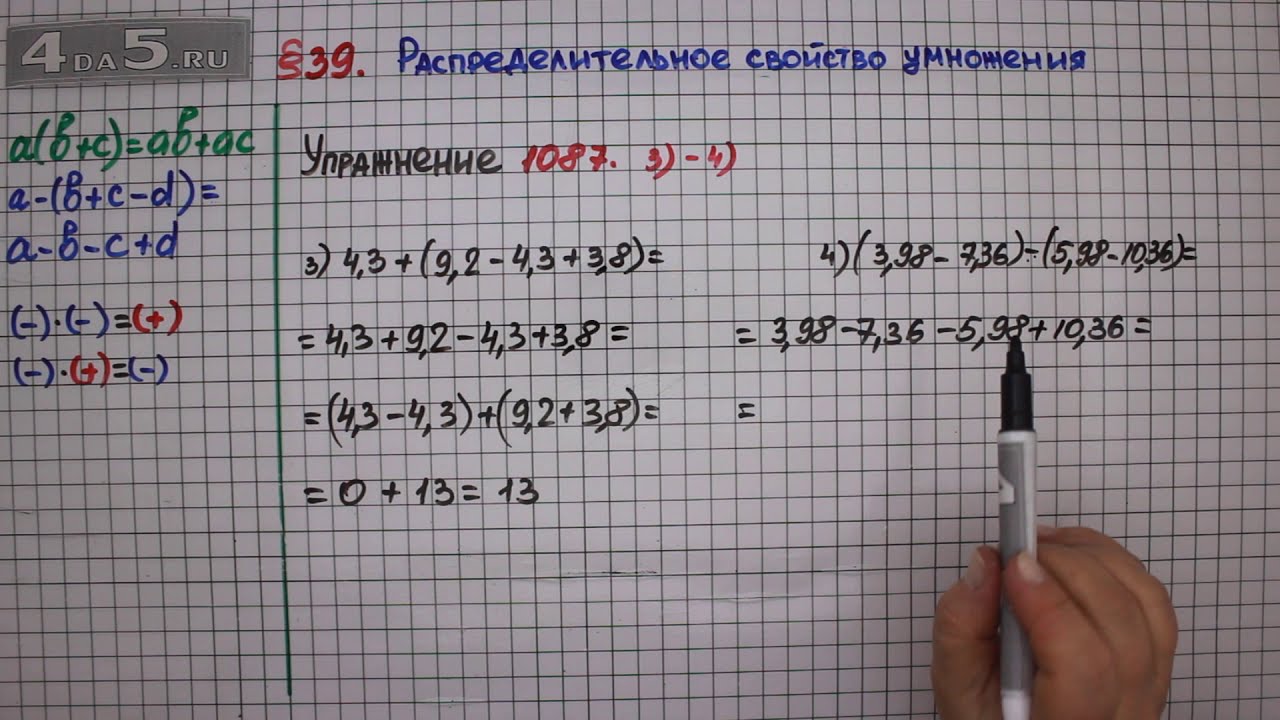 4DA5.RU
§39. Распределительное свойство умножения
a(b+c)=ab+ac
a-(b+c-d)=
a-b-c+d
(-)·(-)=(+)
(-)·(+)=(-)
Упражнение 1087. 3)-4)
3) 4,3+(9,2-4,3+3,8)=
=4,3+9,2-4,3+3,8=
=(4,3-4,3)+(9,2+3,8)=
=0+13=13
4) (3,98-7,36)-(5,98-10,36)=
=3,98-7,36-5,98+10,36=
=